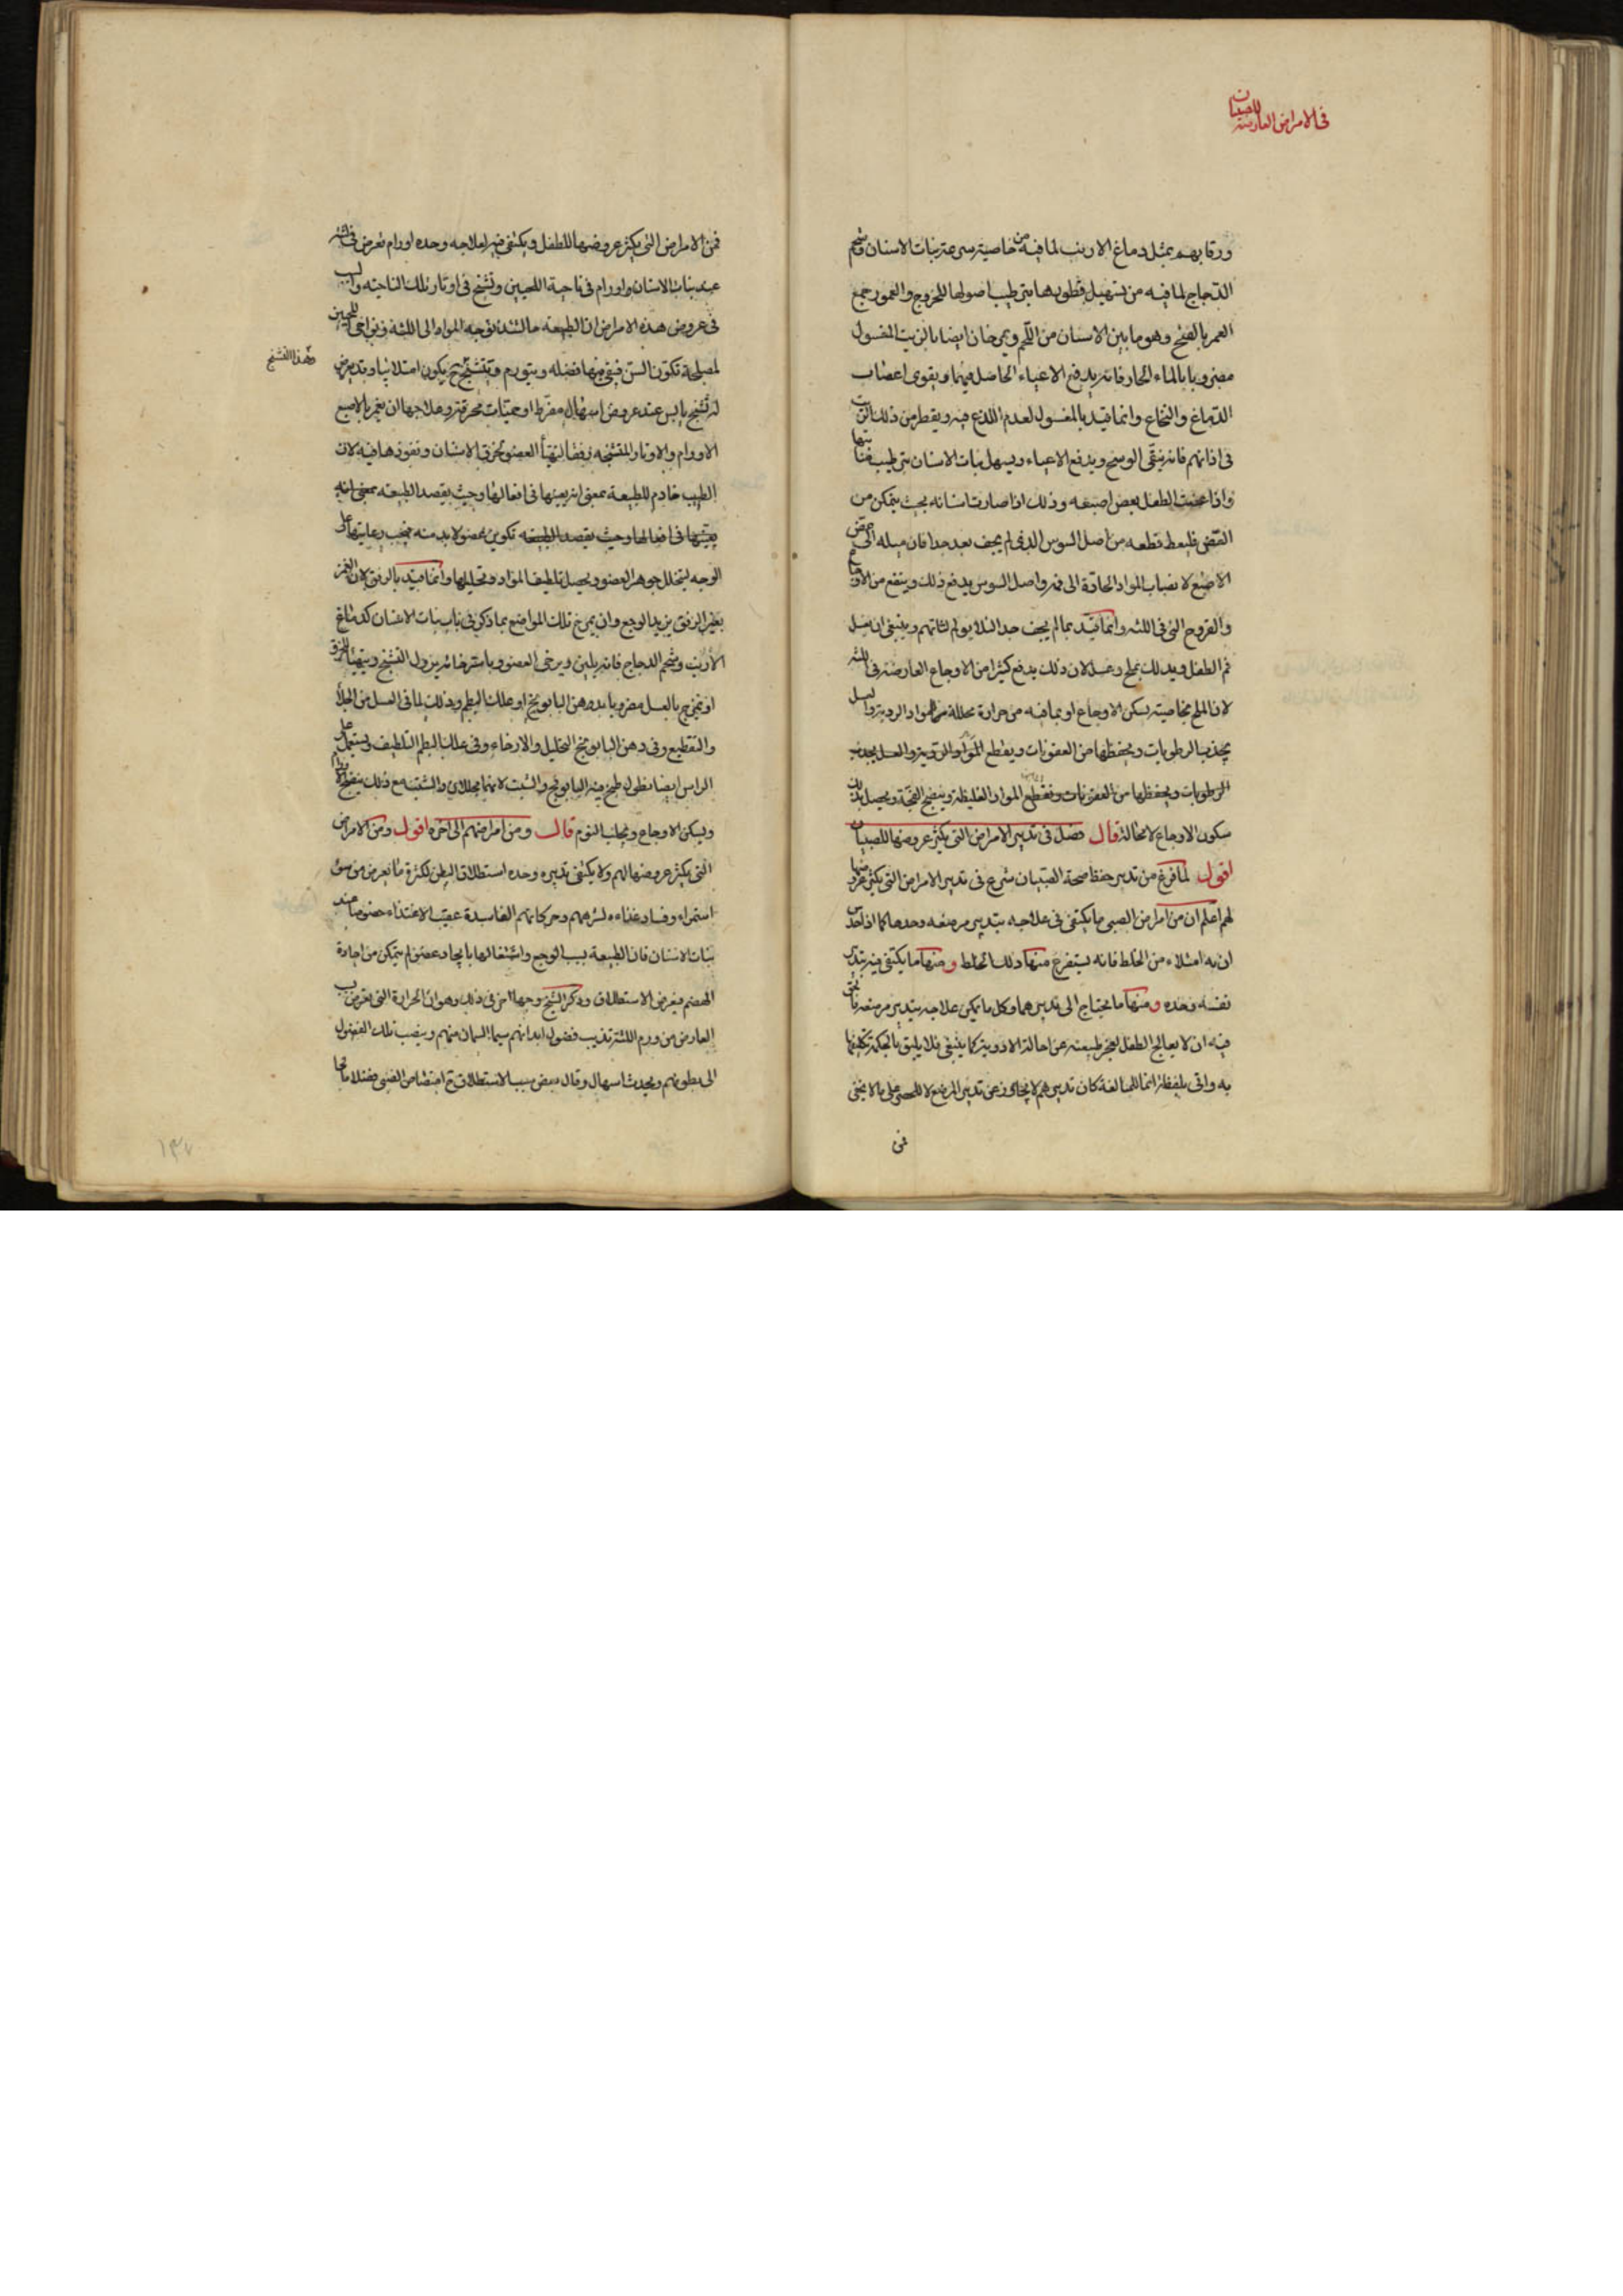 في الامراض العارضة للصبيان
ورقابهم بمثل دماغ الارنب لما فيه من خاصية سرعة نبات الاسنان وشحم
الدجاج لما فيه من تسهيل فطورها بترطيب اصولها للخروج والعمور جمع
العمر بالفتح وهو ما بين الاسنان من اللحم ويمرخان ايضا بالزيت المغسول
مضروبا بالماء الحار فانه يدفع الاعياء الحاصل فيهما ويقوى اعصاب
الدماغ والنخاع وانما قيد بالمغسول لعدم اللذع فيه ويقطر من ذلك الزيت
فى اذانهم فانه ينقى الوسخ ويدفع الاعياء ويسهل نبات الاسنان بترطيب منابتها
واذا عضت الطفل بعض اصبعه وذلك اذا صارت اسنانه بحيث يتمكن من
العض فليعط قطعه من اصل السوس الذى لم يجف بعد جدا فان ميله الى عض
الاصبع لانصباب المواد الحادة الى فمه واصل السوس يدفع ذلك وينفع من الاوجاع
والقروح التى فى اللثه وانما قيد بما لم يجف جدا لئلا يولم لثاتهم وينبغى ان يغسل
فم الطفل ويدلك بملح وعسل لان ذلك يدفع كثيرا من الاوجاع العارضة فى اللثه
لان الملح بخاصيته يسكن الاوجاع او بما فيه من حرارة محللة من المواد الردية والعسل
يجذب الرطوبات ويحفظها من العفونات ويقطع المواد الردية والعسل يجذب
الرطوبات ويحفظها من العفونات ويقطع المواد الغليظة وينضج الفجة ويحصل بذلك
سكون الاوجاع لا محالة قال فصل فى تدبير الامراض التى يكثر عروضها للصبيان
اقول لما فرغ من تدبير حفظ صحة الصبيان شرع فى تدبير الامراض التى يكثر عروضها
لهم اعلم ان من امراض الصبى ما يكتفى فى علاجه بتدبير مرضعه وحدها كما اذا حدس
ان به امتلاء من الخلط فانه يستفرغ منها ذلك الخلط ومنها ما يكتفى فيه بتدبير
نفسه وحده ومنها ما يحتاج الى تدبيرهما وكل ما يمكن علاجه بتدبير مرضعه فالحق
فيه ان لا يعالج الطفل لعجز طبيعته عن احالة الادوية كما ينبغى فلا يليق بالحكمة تكليفها
به واتى بلفظة انما للمبالغة كان تدبيرهم لا يتجاوز عن تدبير المرضع لا للحصر على ما لا يخفى
فمن
فمن الامراض التى يكثر عروضها للطفل ويكتفى فيه بعلاجه وحده اورام تعرض فى اللثه
عند نبات الاسنان واورام فى ناحية اللحيين وتشنج فى اوتار تلك الناحيه والسبب
فى عروض هذه الامراض ان الطبيعة حالتئذ توجه المواد الى اللثة ونواحى اللحيين
وهذا التشنج
لمصلحة تكون السن فيبقى منها فضله ويتورم ويتشنج ح يكون امتلائيا وقد يعرض
له تشنج يابس عند عروض اسهال مفرط او حميات محرقة وعلاجها ان يغمز بالاصبع
الاورام والاوتار المتشنجه رفقا ليتهيأ العضو لخرق الاسنان ونفوذها فيه لان
الطبيب خادم للطبيعة بمعنى انه يعينها فى افعالها وحيث يقصد الطبيعه بمعنى انه
يعينها فى افعالها وحيث يقصد الطبيعه تكوين عضو لا بد منه فيجب رعايتها على
الوجه ليتخلل جوهر العضو ويحصل تلطيف المواد وتحليلها وانما قيد بالرفق لان الغمز
بغير الرفق يزيد الوجع وان يمرخ تلك المواضع بما ذكر فى باب نبات الاسنان كدماغ
الارنب وشحم الدجاج فانه يلين ويرخى العضو وباسترخائه يزول التشنج ويتهيأ للخرق
او يمرخ بالعسل مضروبا بدهن البابونج او علك البطم وذلك لما فى العسل من الجلاء
والتقطيع وفى دهن البابونج التحليل والارخاء وفى علك البطم التلطيف ويستعمل على
الراس ايضا نطول طبخ فيه البابونج والشبت لانهما يحللان والشبت مع ذلك ينضج الاورام
ويسكن الاوجاع ويجلب النوم قال ومن امراضهم الى اخره اقول ومن الامراض
التى يكثر عروضها لهم ولا يكتفى تدبيره وحده استطلاق البطن لكثرة ما يعرض من سوء
استمراء وفساد غذاءه لشرههم وحركاتهم الفاسدة عقيب الاغتذاء خصوصا عند
نبات الاسنان فان الطبيعة بسبب الوجع واشتغالها بايجاد عضو لم يتمكن من اجادة
الهضم فيعرض الاستطلاق وذكر الشيخ وجها اخر فى ذلك وهو ان الحرارة التى تعرض بسبب
العارض من ورم اللثة تذيب فضول ابدانهم سيما السمان منهم وينصب تلك الفضول
الى بطونهم ويحدث اسهال وقال بعض سبب الاستطلاق ح امتصاص الصبى فضلا مالحا
١٣٧